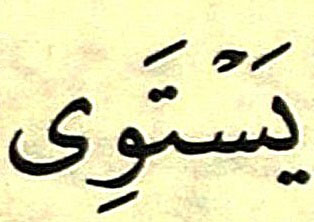 يَسْتَوِى